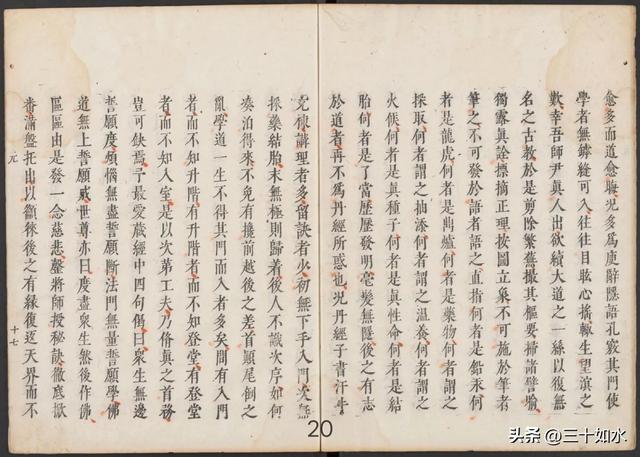 愈多而道愈晦況多爲庾辭隱語孔竅其門使
學者無罅縫可入往往目眩心搖輒生望之
歎幸吾師尹眞人出欲續大道之一絲以復無
名之古教於是剪除繁蕪撮其樞要掃諸譬喻
獨露眞詮標摘正理按圖立象不可施於筆者
筆之不可發於語者語之直指何者是鉛汞何
者是龍虎何者是鼎爐何者是藥物何者謂之
採取何者謂之抽添何者謂之溫養何者謂之
火候何者是眞種子何者是眞性命何者是結
胎何者是了當歷歷發明毫髮無隱後之有志
於道者再不爲丹經所惑也況丹經子書汗牛
充棟講理者多留訣者少初無下手入門次無
採藥結胎末無極則歸着後人不識次序如何
湊泊得來不免有攙前越後之差首顛尾倒之
亂學道一生不得其門而入者多矣間有入門
者而不知升階有升階者而不知登堂有登堂
者而不知入室是以次第工夫乃脩眞之首務
豈可缺焉予最愛藏經中四句偈曰衆生無邊
誓願度煩惱無盡誓願斷法門無量誓願學佛
道無上誓願成世尊亦曰度盡衆生然後作佛
區區由是發一念慈悲將師授秘訣徹底掀
番滿盤托出以籲徠後之有緣復還天界而不
元
十七
20
头条 @三十如水